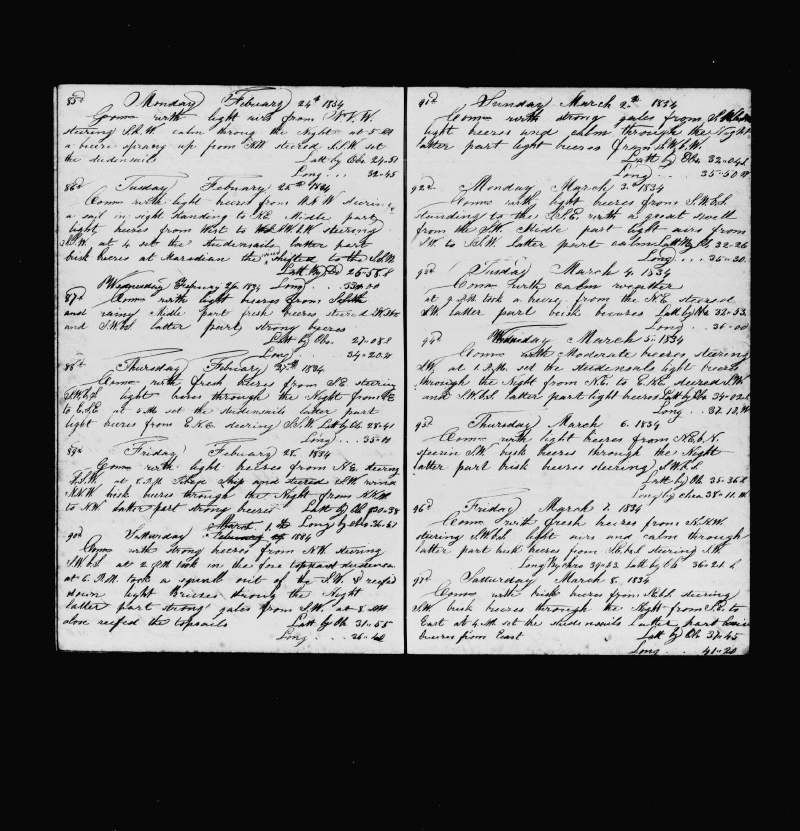 85d Monday Febuary 24th 1834
Comm with light airs from W.V.W.
steering S.b.W. calm throug the Night at 5 AM
a beere sprang up from NW steered S.S.W set
the studensails Latt by Obs 24-51
Long ... 32-45
86d Tusday Febuary 25th 1834
Comm with light beeres from W.b.W steering
a sail in sight standing to N.E. Middle part
light beeres from West to S.W.b.W steering
at 4 set the studensails latter part
brisk beeres at Maradian the and shifted to the S.S.W.
Latt by 25-58 S
Wednesday Febuary 26 1834 Long ... 33-00
87d Comm with light beeres from
and rainy Midle part fresh beeres steered
and S.W.b.S latter part strong beeres
Latt by Obs. 27-08 S
Long ... 34-20 W
88th Thursday Febuary 27th 1834
Comm with fresh beeres from S.E. steering
S.W.b.S light beeres through the Night from
to E.S.E at 4 AM set the studensails latter part
light beeres from E.N.E steering S.S.W. Latt by Ob. 28-41
Long ... 35-10
89d Friday Febuary 28. 1834
Comm with light beeres from N.E. steering
S.S.W. at 6 P.M. Ship and steered S.W. wind
N.N.W. bisk beeres through the Night from N.N.W
to N.W. latter part strong beeres Latt by Ob 30-38
March 1. Long by Obs. 36-51
90d Satturday Febuary 1834
Comm with strong beeres from N.W. steering
S.W.b.S. at 2 P.M took in the fore
at 6. P.M. took a squall out of the S.W. & reefed
down light Breeses throug the Night
latter part strong gales from S.W. at 8 AM
close reefed the topsails Latt by Ob 31-55
Long ... 36-40
91d Sunday March 2th 1834
Comm with strong gales from
light beeres and calm through the Night
latter part light beeres from S.W.b.W.
Latt by Obs 32-04 S
Long ... 35-50 W
92d Monday March 3. 1834
Comm with light beeres from S.W.b.S
standing to the S.S.E. with a great swell
from the S.W. Midle part light airs from
S.W. to S.S.W. Latter part calm Latt by Ob 32-26
Long ... 35-30
93d Tusday March 4. 1834
Comm with calm weather
at 9 P.M took a beere from the N.E. steered
S.W. latter part bisk beeeres Latt by Obs 32-53.
Long ... 36-00
94d Wensday March 5. 1834
Comm with Moderate beeres steering
S.W. at 1 P.M. set the studensails light beeres
through the Night from N.E. to E.N.E steered S.W.
and S.W.b.S latter part light beeres Latt by Obs 34-02 S.
Long ... 37-12, W
95d Thursday March 6. 1834
Comm with light beeres from N.E.b.N.
steerin S.W. bisk beeres through the Night
latter part bisk beeres steering S.W.b.S
Latt by Ob 35-36 S
Long by chro 38-11. W
96d Friday March 7. 1834
Comm with fresh beeres from N.N.W.
steering S.W.b.S. light airs and calm through
latter part bisk beeres from S.E.b.S. steering S.W.
Long by chro 39-23 Latt by Ob. 36-21 S
97d Satturday March 8. 1834
Comm with bisk beeres from S.E.b.S. steering
S.W. bisk beeres through the Night from S.E. to
East at 4 AM set the studensails Latter part
beeres from East Latt by Ob 37-45
Long ... 41-20